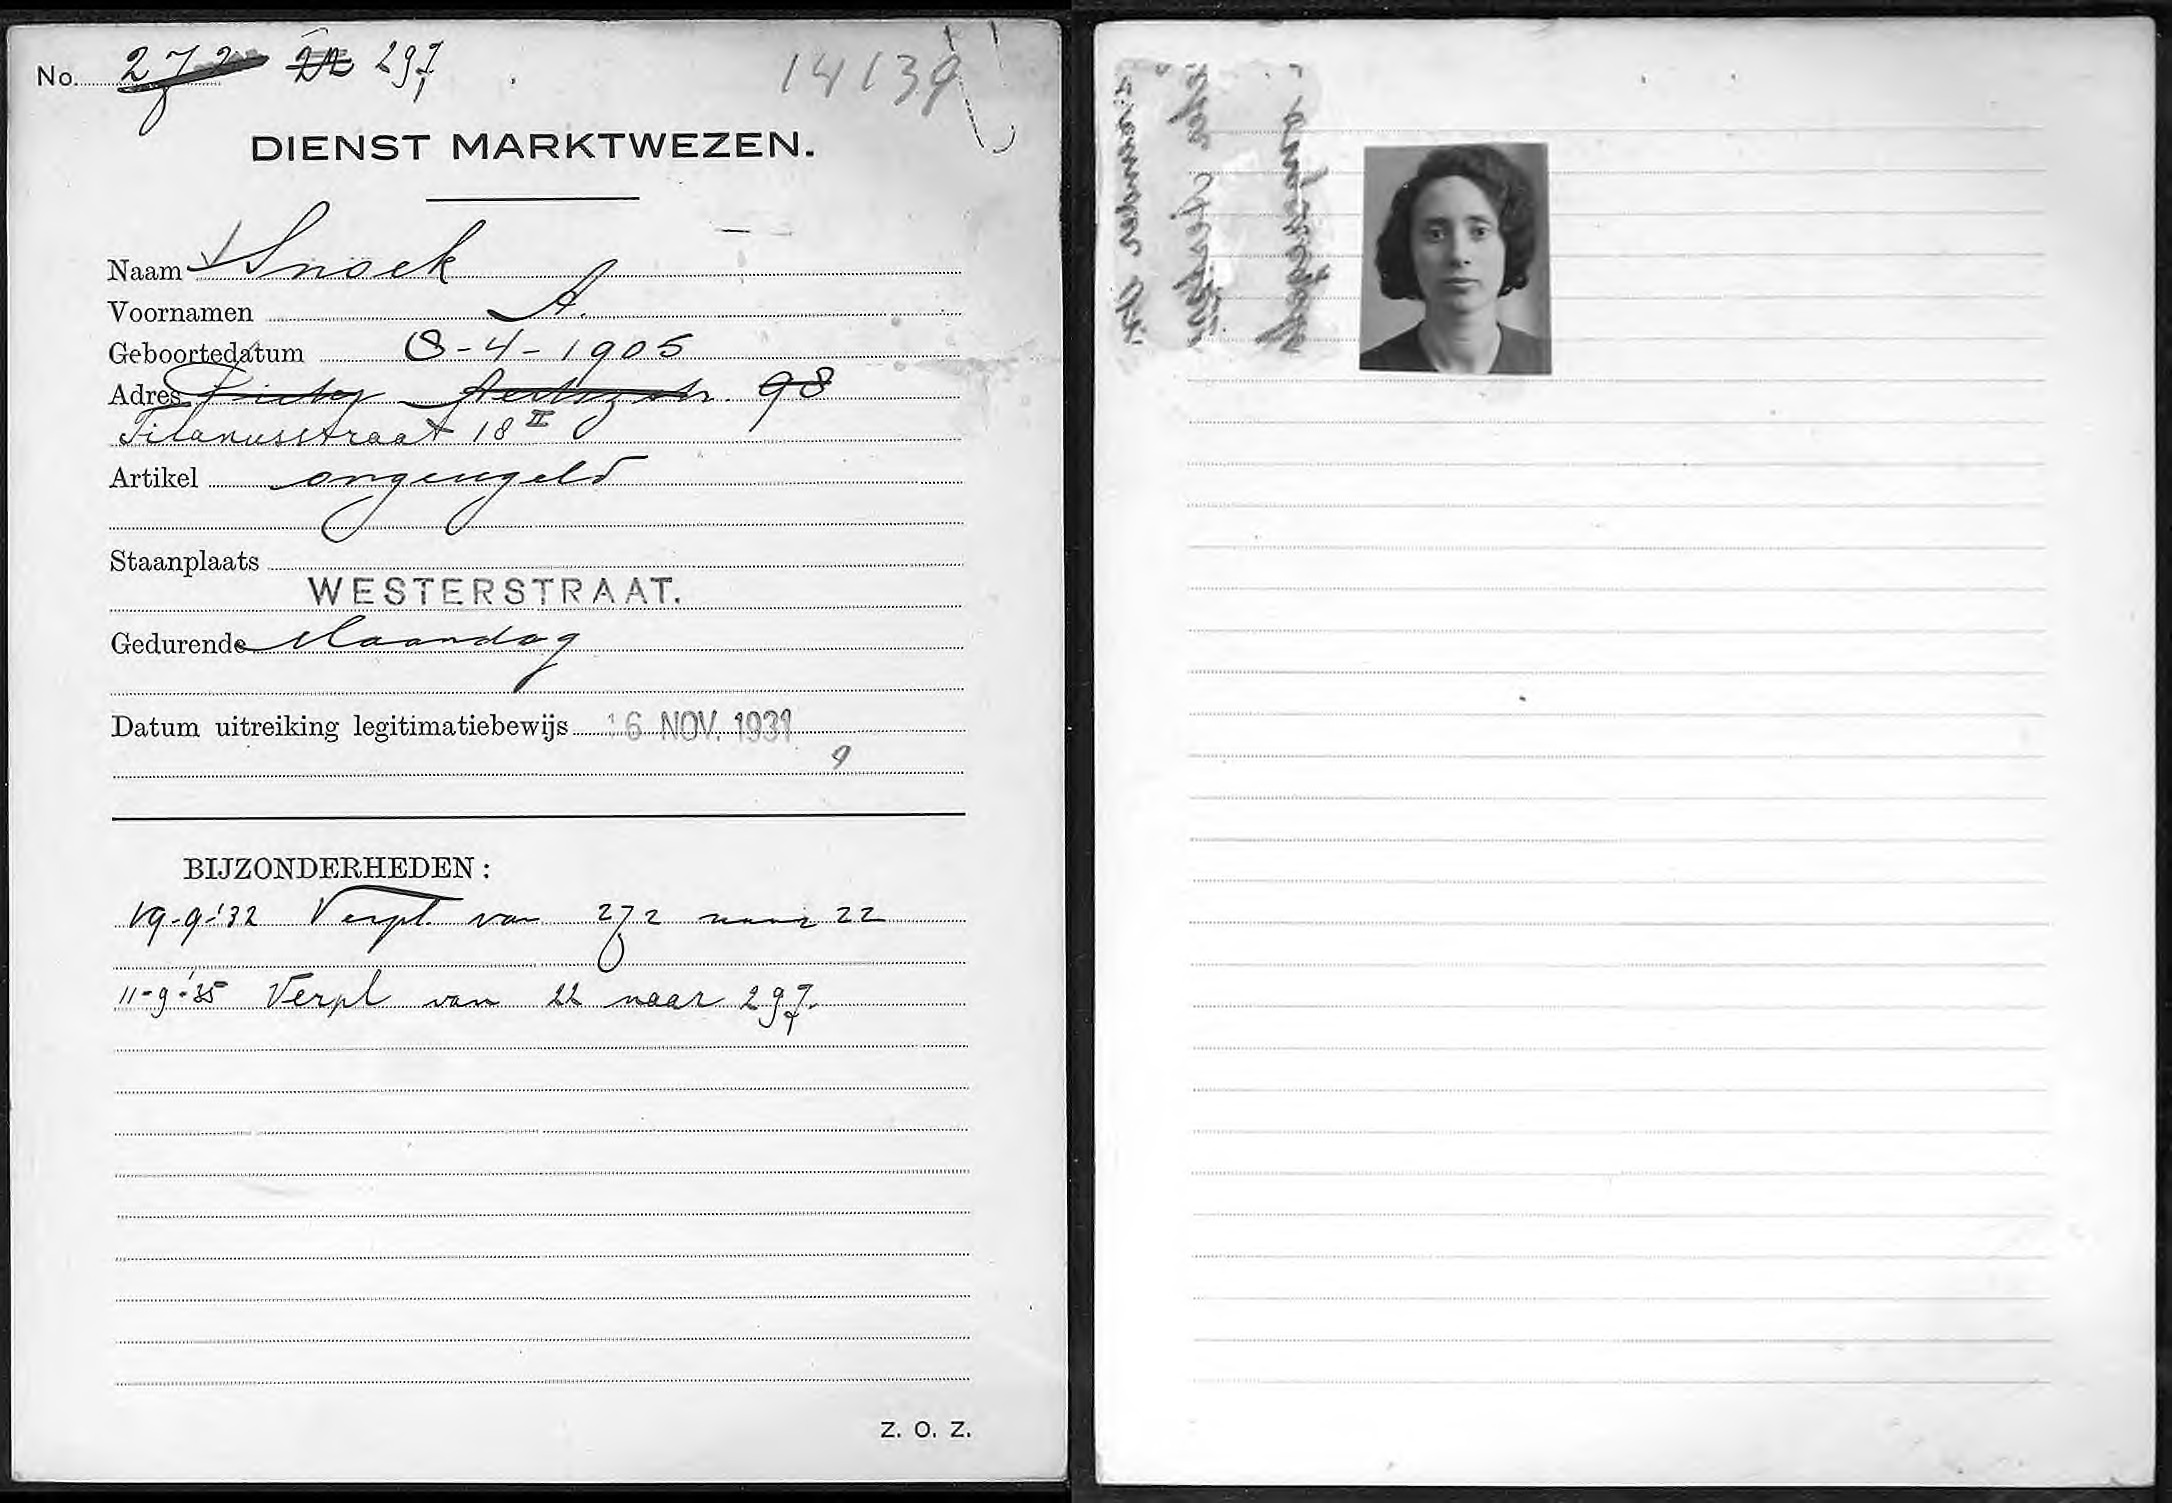 No. 272 22 297
14139
DIENST MARKTWEZEN.
Naam Snoek
Voornamen A.
Geboortedatum 8-4-1905
Adres 98
Tilanusstraat 18 II
Artikel ongeregeld
Staanplaats
WESTERSTRAAT.
Gedurende Maandag
Datum uitreiking legitimatiebewijs 16 NOV. 1931
BIJZONDERHEDEN:
19-9-'32 Verpl. van 272 naar 22
11-9-'35 Verpl van 22 naar 297.
Z. O. Z.